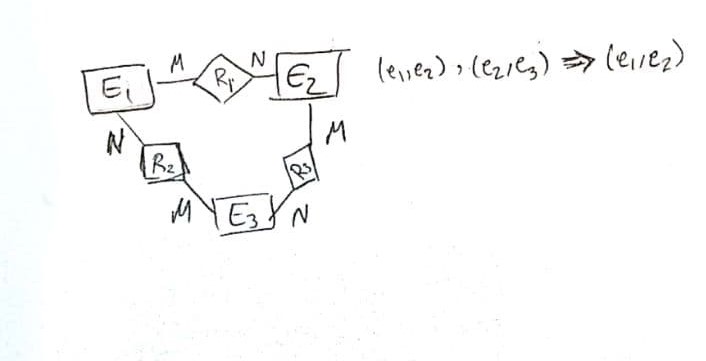 E1 M R1 N E2 (e1,e2), (e2,e3) ⇒ (e1,e2)
N R2 R3 M
M E3 N